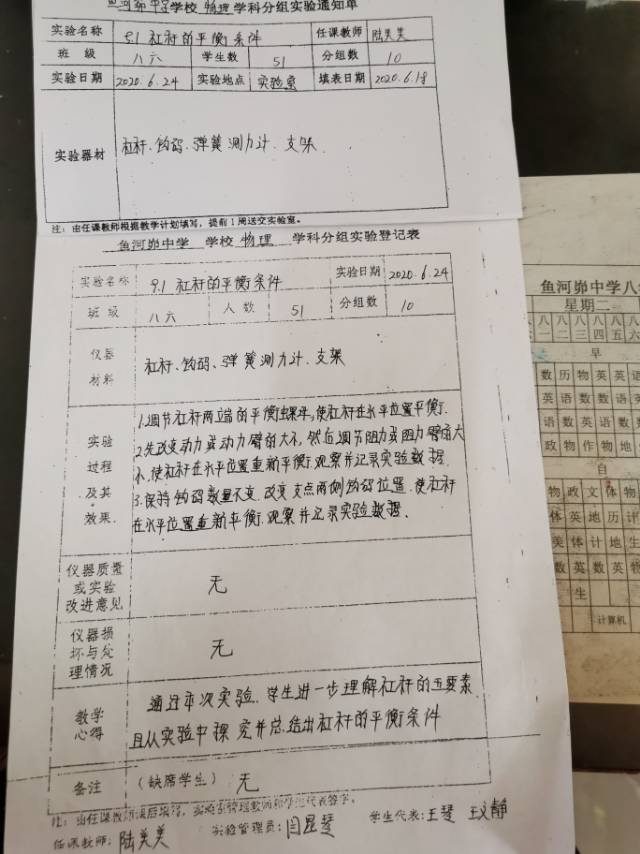 鱼河峁中学学校 物理 学科分组实验通知单
实验名称 9.1 杠杆的平衡条件 任课教师 陆美美
班级 八六 学生数 51 分组数 10
实验日期 2020.6.24 实验地点 实验室 填表日期 2020.6.18
实验器材 杠杆、钩码、弹簧测力计、支架
注：由任课教师根据教学计划填写，提前1周送交实验室。
鱼河峁中学 学校 物理 学科分组实验登记表
实验名称 9.1 杠杆的平衡条件 实验日期 2020.6.24
班级 八六 人数 51 分组数 10
仪器材料 杠杆、钩码、弹簧测力计、支架
实验过程及其效果
1.调节杠杆两端的平衡螺母,使杠杆在水平位置平衡.
2.先改变动力或动力臂的大小,然后调节阻力或阻力臂的大
小,使杠杆在水平位置重新平衡,观察并记录实验数据.
3.保持钩码数量不变,改变支点两侧钩码位置,使杠杆
在水平位置重新平衡,观察并记录实验数据.
仪器质量或实验改进意见 无
仪器损坏与处理情况 无
教学心得
通过本次实验,学生进一步理解杠杆的五要素,
且从实验中 并总结出杠杆的平衡条件
备注 (缺席学生) 无
注：由任课教师课后填写，
任课教师：陆美美 实验管理员： 学生代表：王 王
鱼河峁中学八
星期二
早
数 历 物 英 英 语
英 语 数 数 语 英
语 数 英 语 数
政 物 作 物 地
自
物 政 文 体 物
体 英 地 历 计
美 体 计 地 生
数 英 数 英 物
生
计算机